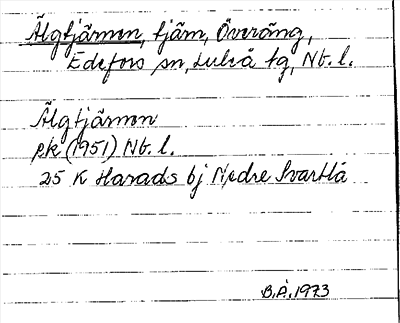 Älgtjärnen, tjärn, Överäng,
Edefors sn, Luleå tg, Nb. l.
Älgtjärnen
pk (1951) Nb. l.
25 K Harads bj Nedre Svartlå
B.Å. 1973